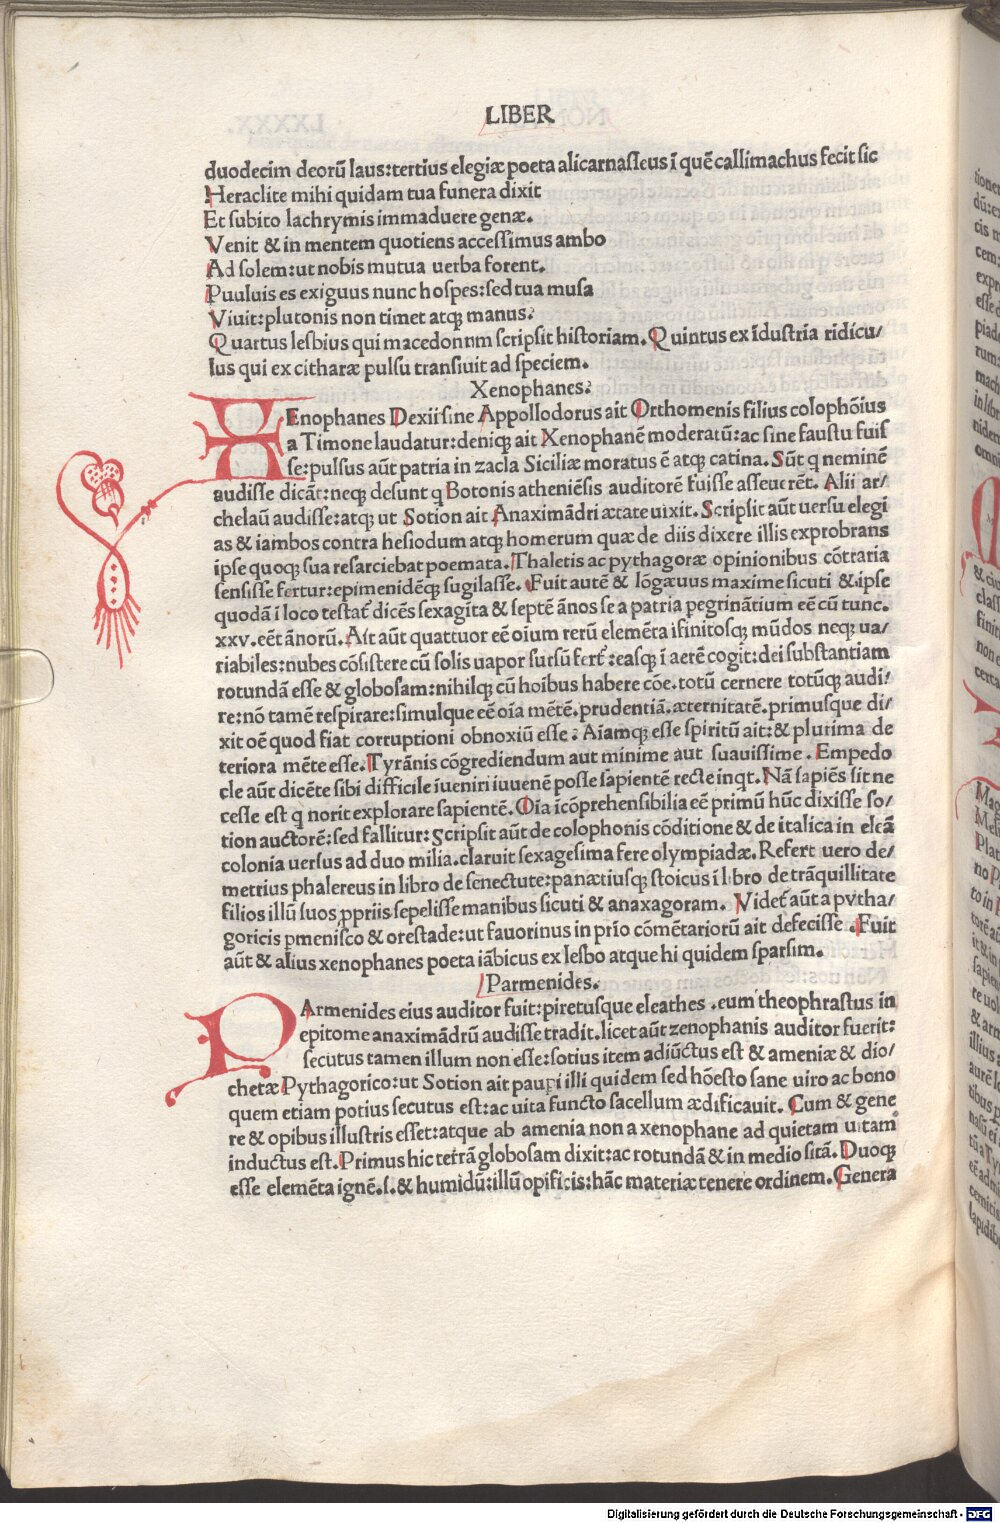 LIBER
duodecim deorū laus:tertius elegiæ poeta alicarnaſſeus ī quē callimachus fecit ſic
Heraclite mihi quidam tua funera dixit
Et ſubito lachrymis immaduere genæ.
Venit & in mentem quotiens acceſſimus ambo
Ad ſolem:ut nobis mutua uerba forent.
Puuluis es exiguus nunc hoſpes:ſed tua muſa
Viuit:plutonis non timet atqꝫ manus.
Quartus leſbius qui macedonum ſcripſit hiſtoriam. Quintus ex īduſtria ridicu/
lus qui ex citharæ pulſu tranſiuit ad ſpeciem.
Xenophanes.
XEnophanes Dexii ſine Appollodorus ait Orthomenis filius colophōius
a Timone laudatur:deniqꝫ ait Xenophanē moderatū:ac ſine fauſtu fuiſ
ſe:pulſus aūt patria in zacla Siciliæ moratus ē atqꝫ catina. Sūt q neminē
audiſſe dicāt:neqꝫ deſunt q Botonis atheniēſis auditorē fuiſſe aſſeuerēt. Alii ar/
chelaū audiſſe:atqꝫ ut Sotion ait Anaximādri ætate uixit. Scripſit aūt uerſu elegi
as & iambos contra heſiodum atqꝫ homerum quæ de diis dixere illis exprobrans
ipſe quoqꝫ ſua reſarciebat poemata. Thaletis ac pythagoræ opinionibus cōtraria
ſenſiſſe fertur:epimenidēqꝫ ſugilaſſe. Fuit autē & lōgæuus maxime ſicuti & ipſe
quodā ī loco teſtat᷑ dicēs ſexagīta & ſeptē ānos ſe a patria pegrinātium eē cū tunc.
xxv. eēt ānorū. Ait aūt quattuor eē oium rerū elemēta ifinitoſqꝫ mūdos neqꝫ ua/
riabiles:nubes cōſiſtere cū ſolis uapor ſurſū fert᷑:eaſqꝫ ī aerē cogit:dei ſubſtantiam
rotundā eſſe & globoſam:nihilqꝫ cū hoibus habere cōe. totū cernere totūqꝫ audi/
re:nō tamē reſpirare:ſimulque eē oīa mētē.prudentiā.æternitatē.primuſque di/
xit oē quod fiat corruptioni obnoxiū eſſe. Aiamqꝫ eſſe ſpiritū ait:& plurima de
teriora mēte eſſe. Tyrānis cōgrediendum aut minime aut ſuauiſſime. Empedo
cle aūt dicēte ſibi difficile īueniri iuuenē poſſe ſapientē recte inqt. Nā ſapiēs ſit ne
ceſſe eſt q norit explorare ſapientē. Oīa īcōprehenſibilia eē primū hūc dixiſſe ſo/
tion auctorē:ſed fallitur:ſcripſit aūt de colophonis cōditione & de italica in eleā
colonia uerſus ad duo milia.claruit ſexageſima fere olympiadæ. Refert uero de/
metrius phalereus in libro de ſenectute:panætiuſqꝫ ſtoicus ī libro de trāquillitate
filios illū ſuos ꝓpriis ſepeliſſe manibus ſicuti & anaxagoram. Videt᷑ aūt a pytha/
goricis pmeniſco & oreſtade:ut fauorinus in prīo cōmētariorū ait defeciſſe. Fuit
aūt & alius xenophanes poeta iābicus ex leſbo atque hi quidem ſparſim.
Parmenides.
PArmenides eius auditor fuit:piretuſque eleathes.eum theophraſtus in
epitome anaximādrū audiſſe tradit.licet aūt zenophanis auditor fuerit:
ſecutus tamen illum non eſſe:ſotius item adiūctus eſt & ameniæ & dio/
chetæ Pythagorico:ut Sotion ait paupi illi quidem ſed hōeſto ſane uiro ac bono
quem etiam potius ſecutus eſt:ac uita functo ſacellum ædificauit. Cum & gene
re & opibus illuſtris eſſet:atque ab amenia non a xenophane ad quietam uitam
inductus eſt. Primus hic terrā globoſam dixit:ac rotundā & in medio ſitā. Duoqꝫ
eſſe elemēta ignē.ſ.& humidū:illū opificis:hāc materiæ tenere ordinem. Genera
Digitalisierung gefördert durch die Deutsche Forschungsgemeinschaft - DFG